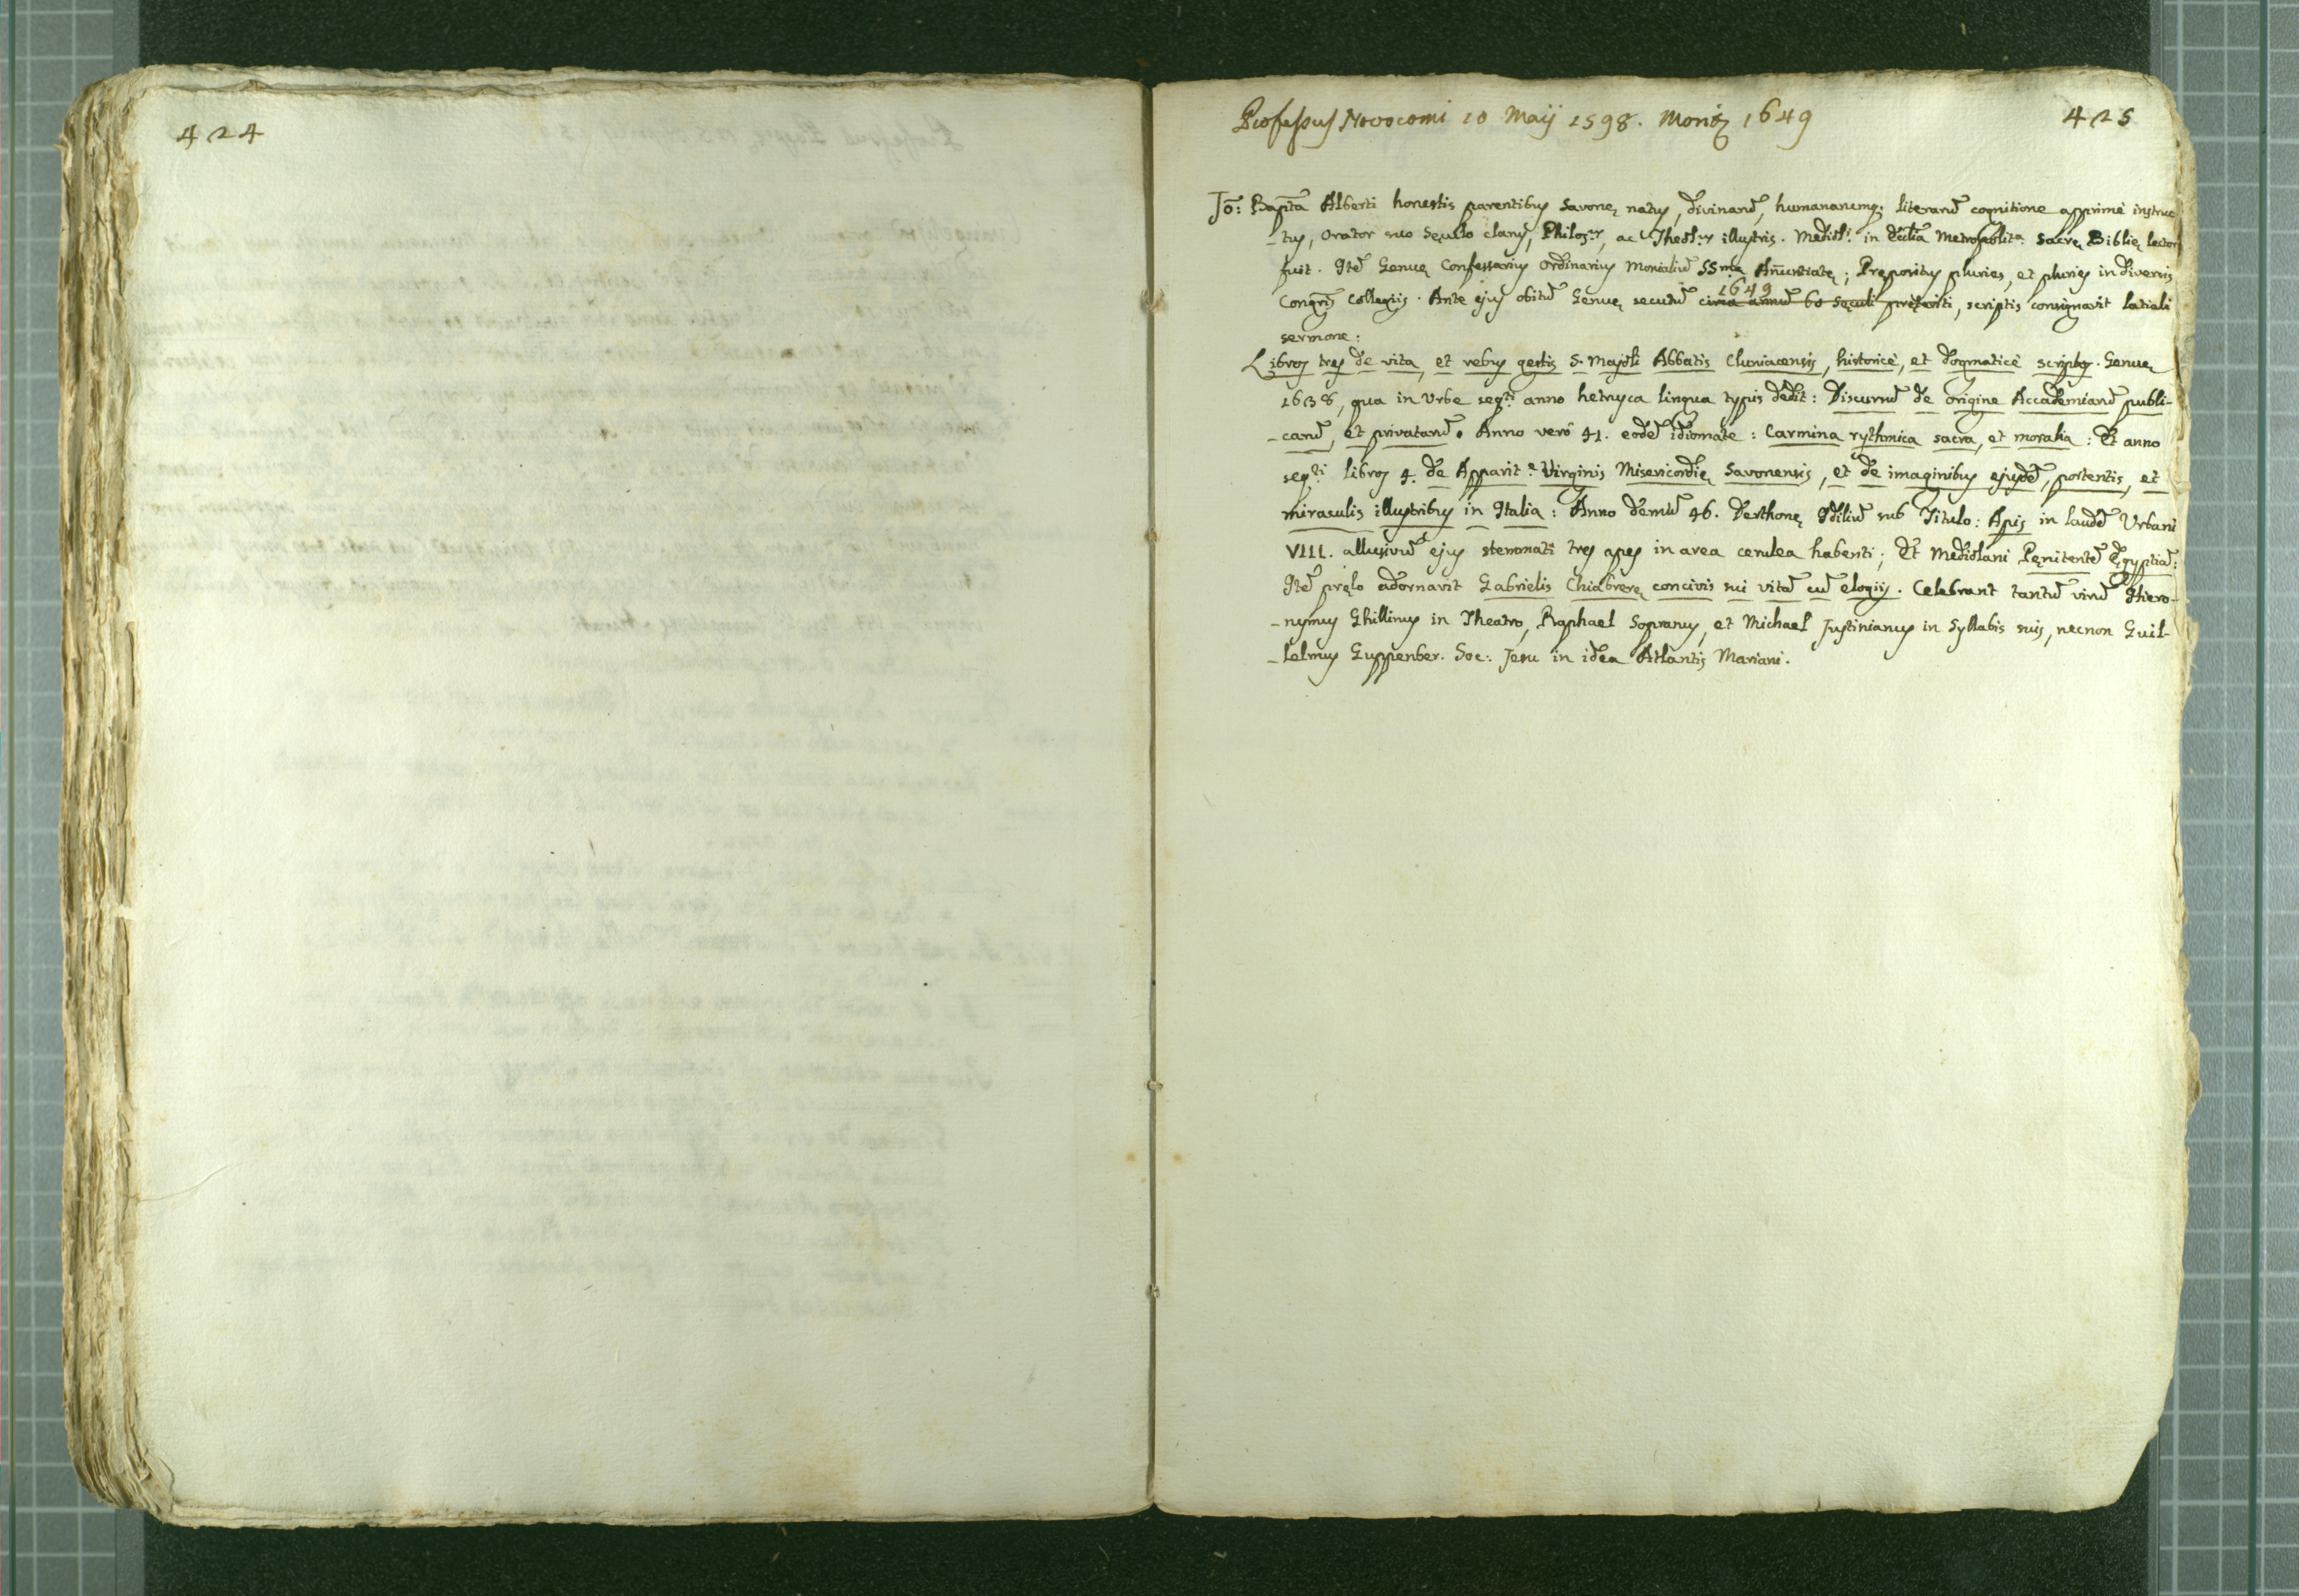 424
Professus Novocomi 10 Maij 1598. Moritz 1649
425
Jo: Bapta Alberti honestis parentibus Savonę natus, divinarū, humanarumq; literarū cognitione apprimè instruc-
-tus, Orator suo Sęculo clarus, Philos.r, ac Theol.r illustris. Mediol.i in Ecclia Metropolit.a Sacrę Biblię lector
fuit. Itē Genuę Confessarius Ordinarius Monialiū SSmę Anūntiatę; Prępositus pluries, et pluries in diversis
Congris Collegiis. Ante ejus obitū Genuę secutū circa annū 60 sęculi pręteriti, scriptis consignavit latiali
1649
sermone:
Libros tres de vita, et rebus gestis S. Majoli Abbatis Cluniacensis, historicè, et dogmaticè scriptos. Genuę
1638, qua in Urbe seq.ti anno hetrusca lingua typis dedit: Discursū de origine Accademiarū publi-
-carū, et privatarū. Anno verò 41. eodē idiomate: Carmina rythmica sacra, et moralia: Et anno
seq.ti libros 4. de Apparit.e Virginis Misericordię Savonensis, et de imaginibus ejusdē, portentis, et
miraculis illustribus in Italia: Anno demū 46. Derthonę Idiliū sub Titulo: Apis in laudē Urbani
VIII. allusivū ejus stemmati tres apes in area cerulea habenti; Et Mediolani Pęnitentē Ęgyptiā:
Itē pręlo adornavit Gabrielis Chiabrerę concivis sui vitā cū elogiis. Celebrant tantū virū Hiero-
-nymus Ghillinus in Theatro, Raphael Sopranus, et Michael Justinianus in Syllabis suis, necnon Guil-
-lelmus Guppenber. Soc: Jesu in idea Atlantis Mariani.